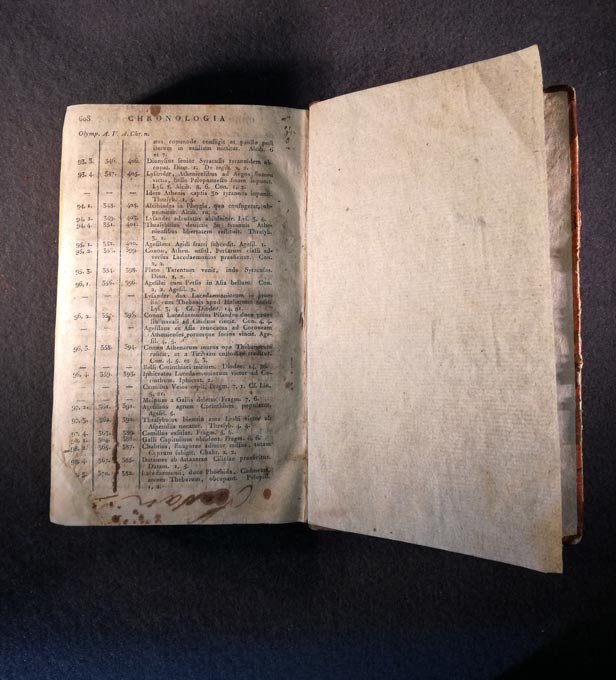 608 CHRONOLOGIA
Olymp. A. V. A. Chr. n.
tum in exilium mittitur. Alcib. 6
et 7.
93. 3. 346. 406. Dionysius senior Syracusis tyrannidem oc-
cupat. Dion. 1. De regib. 2, 2.
93. 4. 347. 405. Lysander, Atheniensibus ad Aegos flumen
victis, bello Peloponnesio finem imponit.
Lys. 1. Alcib. 8. 6. Con. 1, 2.
— — — Idem Athenis captis 30 tyrannos imponit.
Thrasyb. 1, 5.
94. 1. 404. Alcibiades in Phrygia, quo confugerat, op-
primitur. Alcib. 10, 2.
94. 2. 349. 403. Lysander
94. 4. 351. 401. Thrasybulus devictis 30 tyrannis Athe-
niensibus libertatem restituit. Thrasyb.
3, 1.
95. 1. 400. Agesilaus Agidi fratri succedit. Agesil. 1.
95. 2. Conon, Athen. exsul, Persarum classi ad-
versus Lacedaemonios praeficitur. Con.
2, 2.
95. 3. 354. 398. Plato Tarentum venit, inde Syracusas.
Dion. 2, 2.
96, 1. 356. 396. Agesilai cum Persis in Asia bellum. Con.
2, 2. Agesil. 2.
— — — Lysander dux Lacedaemoniorum in proe-
lio cum Thebanis apud Haliartum
Lys. 3, 4. Cf. Diodor. 14, 81.
96, 2. Conon Lacedaemonios Pisandro duce proe-
lio navali ad Cnidum vincit. Con. 4, 4.
— — — Agesilaus ex Asia revocatus ad Coroneam
Athenienses eorumque socios vincit. Age-
sil. 4, 5.
96, 3. 358. 394. Conon Athenarum muros ope Thebanorum
reficit, et a Tiribazo custodiae traditur.
Con. 4, 5. et 5, 3.
— — — Belli Corinthiaci initium. Diodor. 14,
96. 4. 359. 393. Iphicrates Lacedaemoniorum victor ad Co-
rinthum. Iphicrat. 2.
— — — Camillus Veios capit. Fragm. 7, 1. Cf. Liv.
5, 21.
— — — Melpum a Gallis deletur. Fragm. 7, 6.
Agesilaus agrum Corinthium populatur.
Agesil. 5.
97. 3. Thrasybulus biennio ante Lesbi victor ab
Aspendiis necatur. Thrasyb. 4, 4.
Camillus exsilat. Fragm. 5, 6.
Galli Capitolium obsident. Fragm. 6, 6.
Chabrias, Euagorae adiutor missus, totam
Cyprum subigit. Chabr. 2, 2.
Datames ab Artaxerxe Ciliciae praeficitur.
Datam. 1, 5.
Lacedaemonii, duce Phoebida, Cadmeam,
arcem Thebarum, occupant. Pelopid.
1, 2.